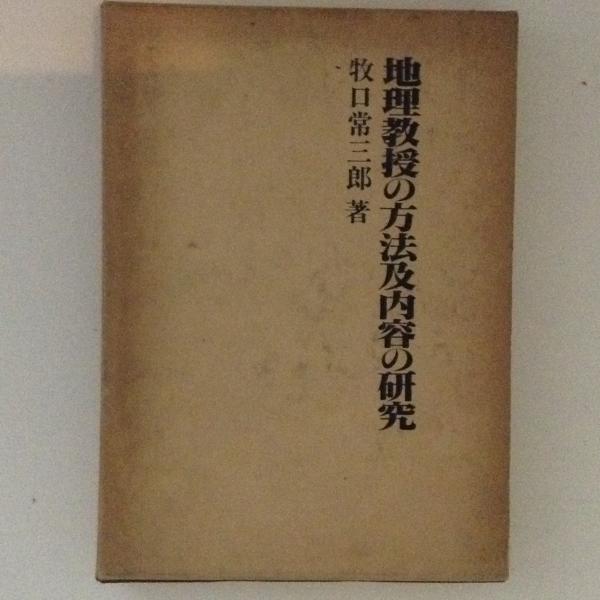 地理教授の方法及内容の研究
牧口常三郎 著